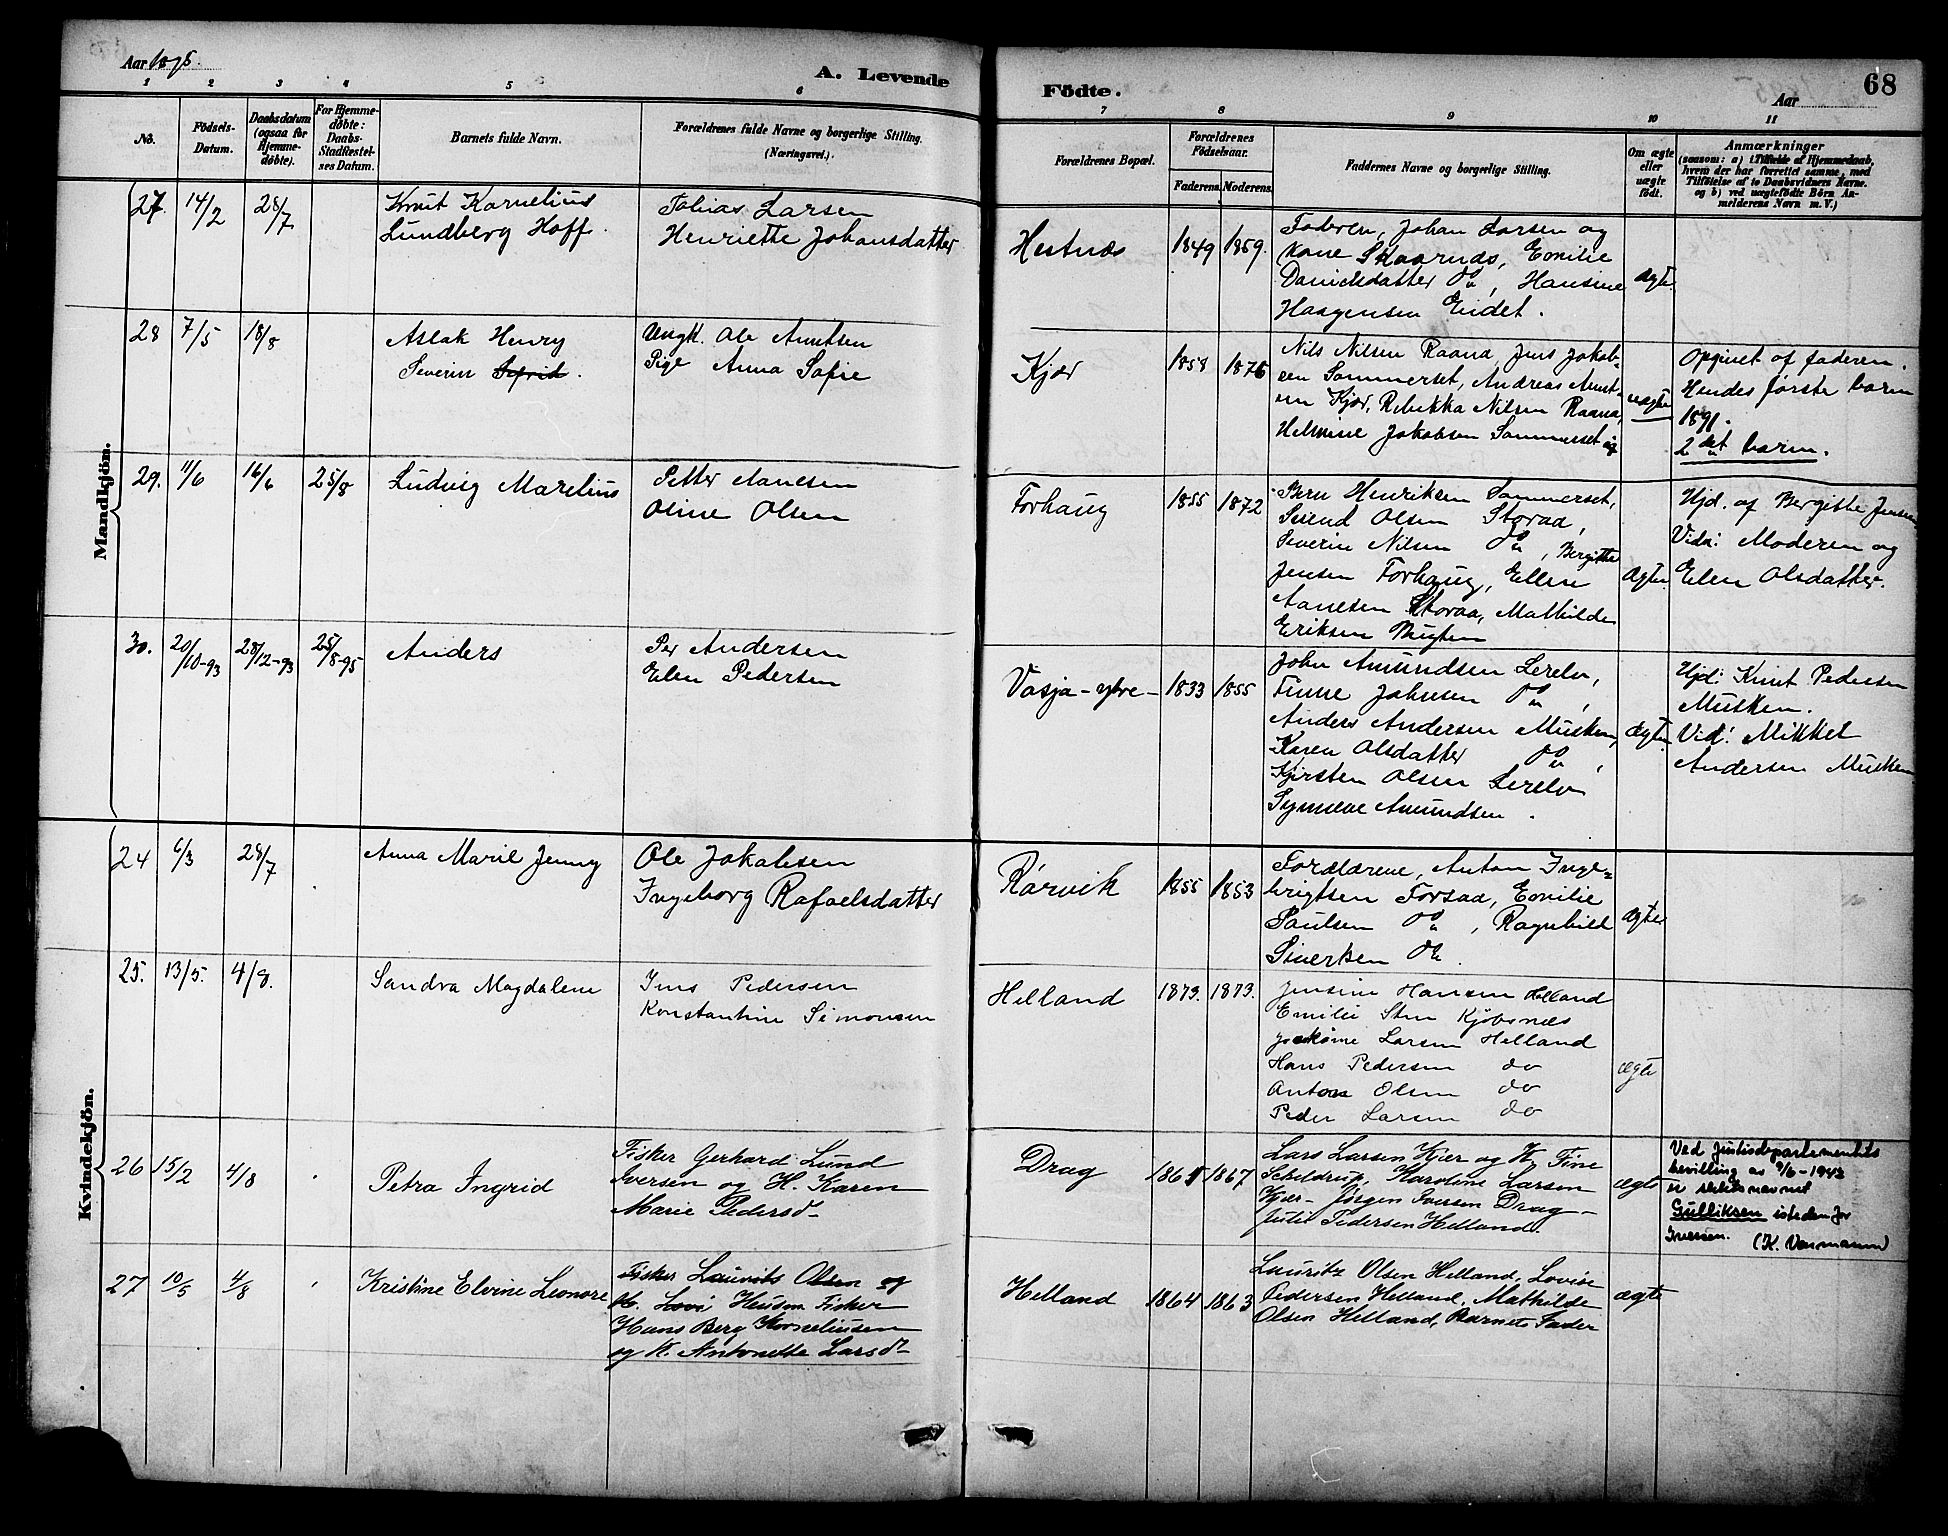 Aar 1895.
A. Levende
Fødte.
Aar
68
1 2 3 4 5 6
7 8 9 10 11
No.
Fødsels-
Datum.
Daabsdatum
(ogsaa for
Hjemme-
døbte).
For Hjemme-
døbte:
Daabs-
Stadfæstel-
ses Datum.
Barnets fulde Navn.
Forældrenes fulde Navne og borgerlige Stilling.
(Næringsvei.)
Forældrenes Bopæl.
Forældrenes
Fødselsaar.
Faderens. Moderens.
Faddernes Navne og borgerlige Stilling.
Om ægte
eller
uægte
født.
Anmærkninger
(saasom: a) i Tilfælde af Hjemmedaab,
hvem der har forrettet samme, med
Tilføielse af to Daabsvidners Navne.
og b) ved uægtefødte Børn An-
melderens Navn m. V.)
Mandkjøn.
27. 14/2 28/7
Knut Kornelius
Lundberg Hoff.
Tobias Larsen
Henriette Johansdatter
Hestnæs
1849 1859.
Faderen, Johan Larsen og
kone Skaarnæs, Emilie
Danielsdatter do, Hansine
Haagensen Eidet.
ægte.
28 7/5 18/8
Aslak Henry
Severin Sefrid.
Ungk. Ole Amtsen
Pige Anna Sofie
Kjær
1858 1876
Nils Nilsen Raana, Jens Jakob-
sen Sommerset, Andreas
Kjær, Rebekka Nilsen Raana,
Helmine Jakobsen Sommerset
uægte
Opgivet af faderen.
Hendes første barn
1891.
2det barn.
29. 11/6 16/6 25/8
Ludvig Marelius
Petter Aanesen
Oline Olsen
Forhaug
1855 1872
Henriksen Sommerset,
Svend Olsen Storaa,
Severin Nilsen do, Bergitte
Jensen Forhaug, Ellen
Aanesen Storaa, Mathilde
Eriksen Bugten
Ægte.
Hjd. af Bergitte Jensen
Vidn: Moderen og
Elen Olsdatter.
30. 20/10-93 28/12-93 25/8-95
Anders
Per Andersen
Elen Pedersen
Vasja-ytre-
1833 1855
John Amundsen Lerelv,
Finne Johnsen do,
Anders Andersen Musken,
Karen Olsdatter do,
Kjirsten Olsen Lerelv
Synneve Amundsen.
Ægte.
Hjd: Knut Pedersen
Musken.
Vid: Mikkel
Andersen Musken
Kvindekjøn.
24 6/3 28/7
Anna Marie Jenny
Ole Jakobsen
Ingeborg Rafaelsdatter
Rørvik
1855 1853
Forældrene, Anton Inge-
brigtsen Forsaa, Emilie
Paulsen do, Ragnhild
Sivertsen do.
ægte
25. 13/5. 4/8.
Sandra Magdalene
Jens Pedersen
Konstantine Simonsen
Helland
1873. 1873.
Jensine Hansen Helland
Emilie Sten Kjøbsnæs
Larsen Helland
Hans Pedersen do
Anton Olsen do
Peder Larsen do
ægte
26 15/2 4/8
Petra Ingrid
Fisker Gerhard Lund
Iversen og H. Karen
Marie Pedersd.
Drag
1865 1867
Lars Larsen Kjær og K. Fine
Scheldrup, Karoline Larsen
Kjær- Jørgen Iversen Drag-
Julie Pedersen Helland.
ægte
Ved Justisdepartementets
bevilling av 9/6-1943
er slektsnavnet
Gulliksen isteden for
Iversen. (K. Venmann)
27 10/5 4/8
Kristine Elvine Leonore
Fisker Laurits Olsen og
K. Hansen Fisker
Hans Berg Korneliussen
og K. Antonette Larsd.
Helland
1864 1863
Lauritz Olsen Helland, Lovise
Pedersen Helland, Mathilde
Olsen Helland, Barnets Fader
ægte